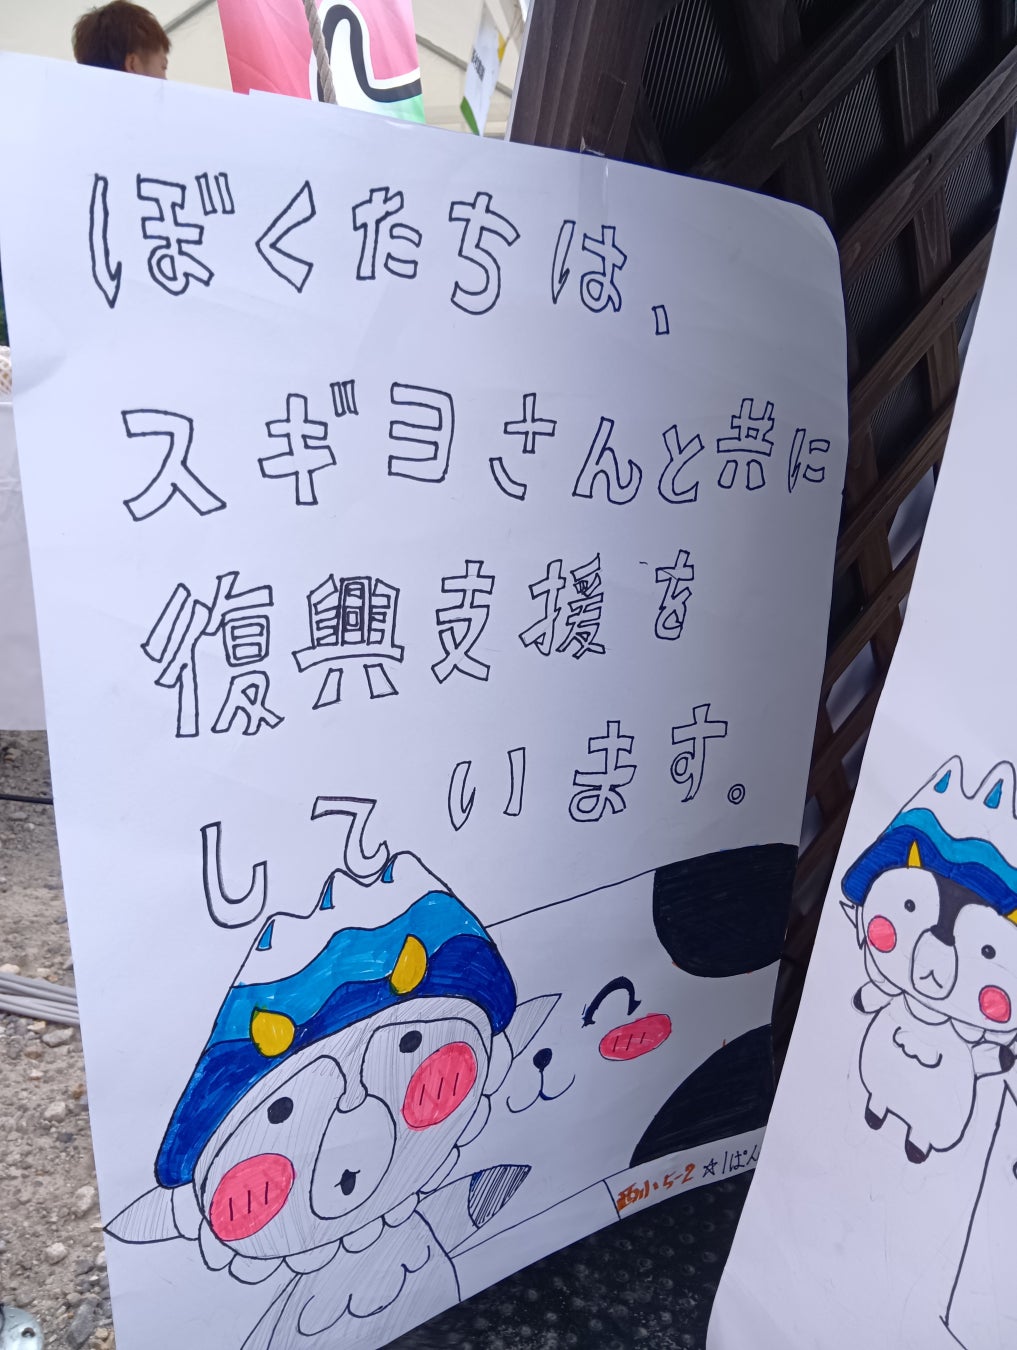 ん
ぼくたちは、
スギヨさんと共に
復興支援を
しています。
西小5-2 ☆しぱん